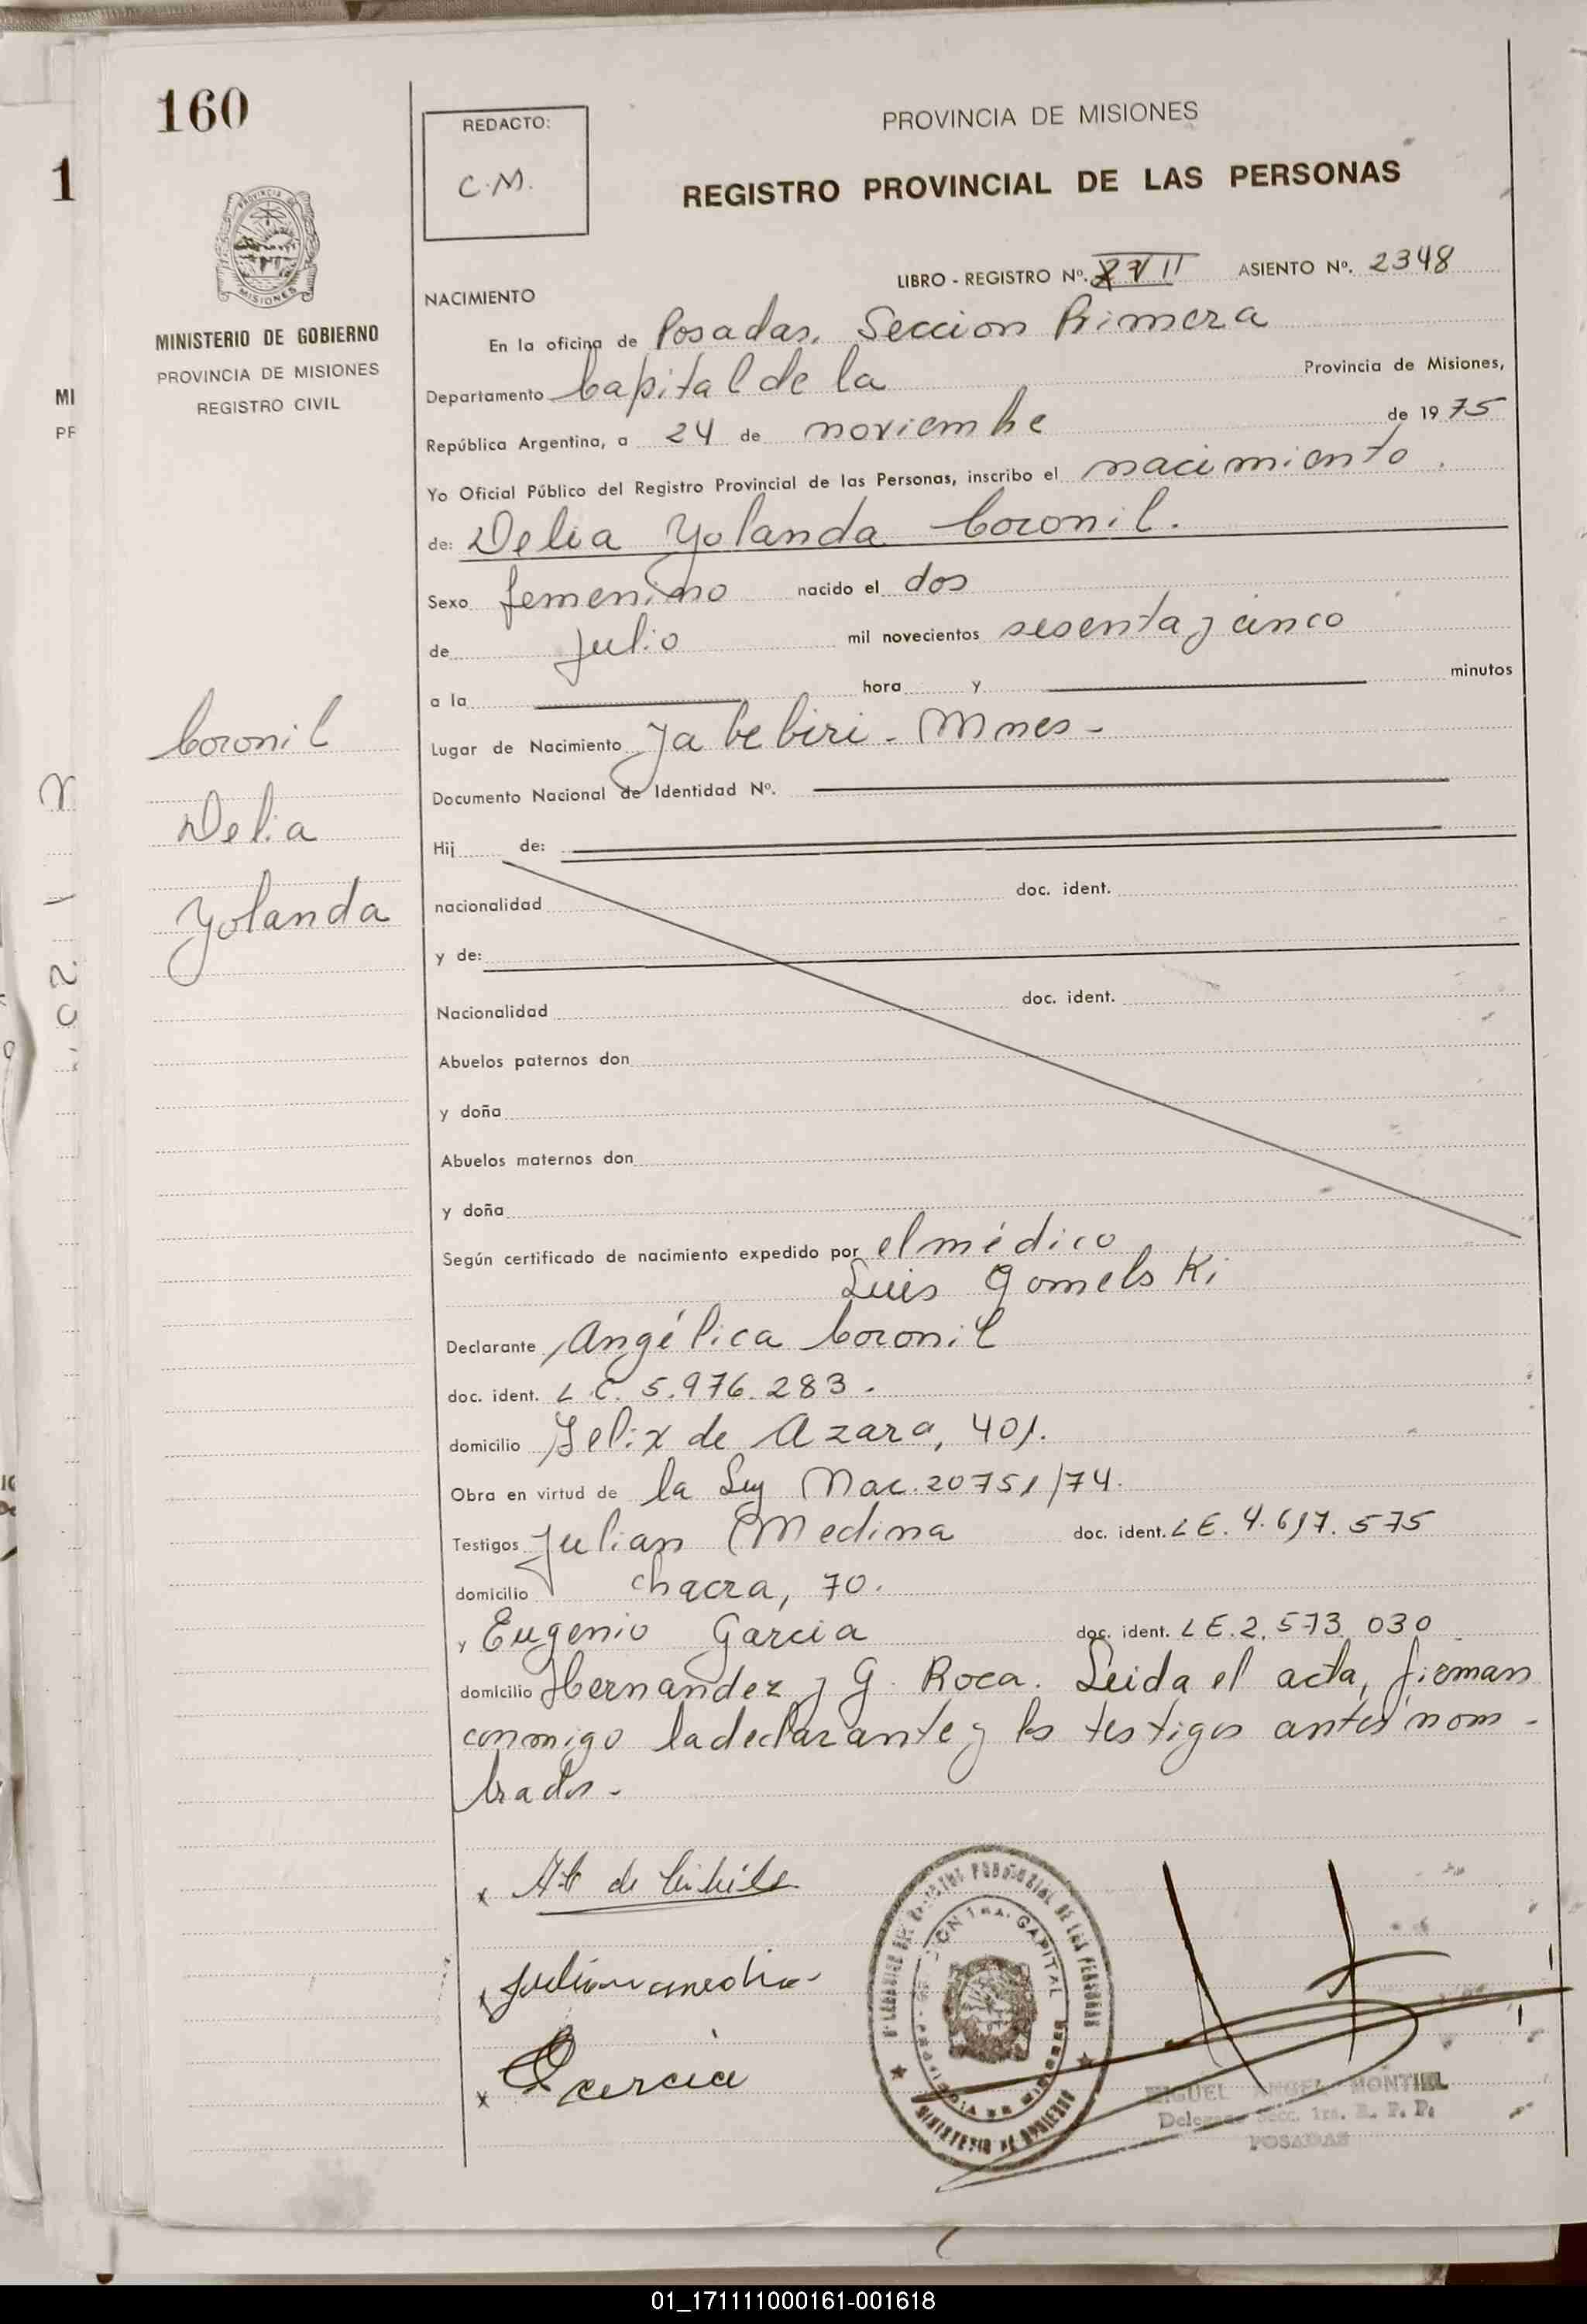 160
REDACTO:
C.M.
PROVINCIA DE MISIONES
REGISTRO PROVINCIAL DE LAS PERSONAS
MINISTERIO DE GOBIERNO
PROVINCIA DE MISIONES
REGISTRO CIVIL
LIBRO - REGISTRO Nº. ASIENTO Nº. 2348
NACIMIENTO
En la oficina de Posadas, Seccion Primera
Departamento Capital de la Provincia de Misiones,
República Argentina, a 24 de noviembre de 1975
Yo Oficial Público del Registro Provincial de las Personas, inscribo el nacimiento.
de: Delia Yolanda Coronil.
Sexo femenino nacido el dos
de Julio mil novecientos sesenta y cinco
a la hora y minutos
Lugar de Nacimiento Yabebiri - Mnes -
Documento Nacional de Identidad Nº.
Coronil
Delia
Yolanda
Hij de:
nacionalidad doc. ident.
y de:
Nacionalidad doc. ident.
Abuelos paternos don
y doña
Abuelos maternos don
y doña
Según certificado de nacimiento expedido por el médico
Luis Gomelski
Declarante Angélica Coronil
doc. ident. L.C. 5.976.283.
domicilio Felix de Azara, 401.
Obra en virtud de la Ley Nac. 20751/74.
Testigos Julian Medina doc. ident. LE. 4.617.575
domicilio chacra, 70.
y Eugenio Garcia doc. ident. LE. 2.573.030
domicilio Hernandez y G. Roca. Leida el acta, firman
conmigo la declarante y los testigos antes nom-
brados-
MINISTERIO DE GOBIERNO
MIGUEL ANGEL MONTIEL
Delegado Secc. 1ra. R. P. P.
POSADAS
01_171111000161-001618